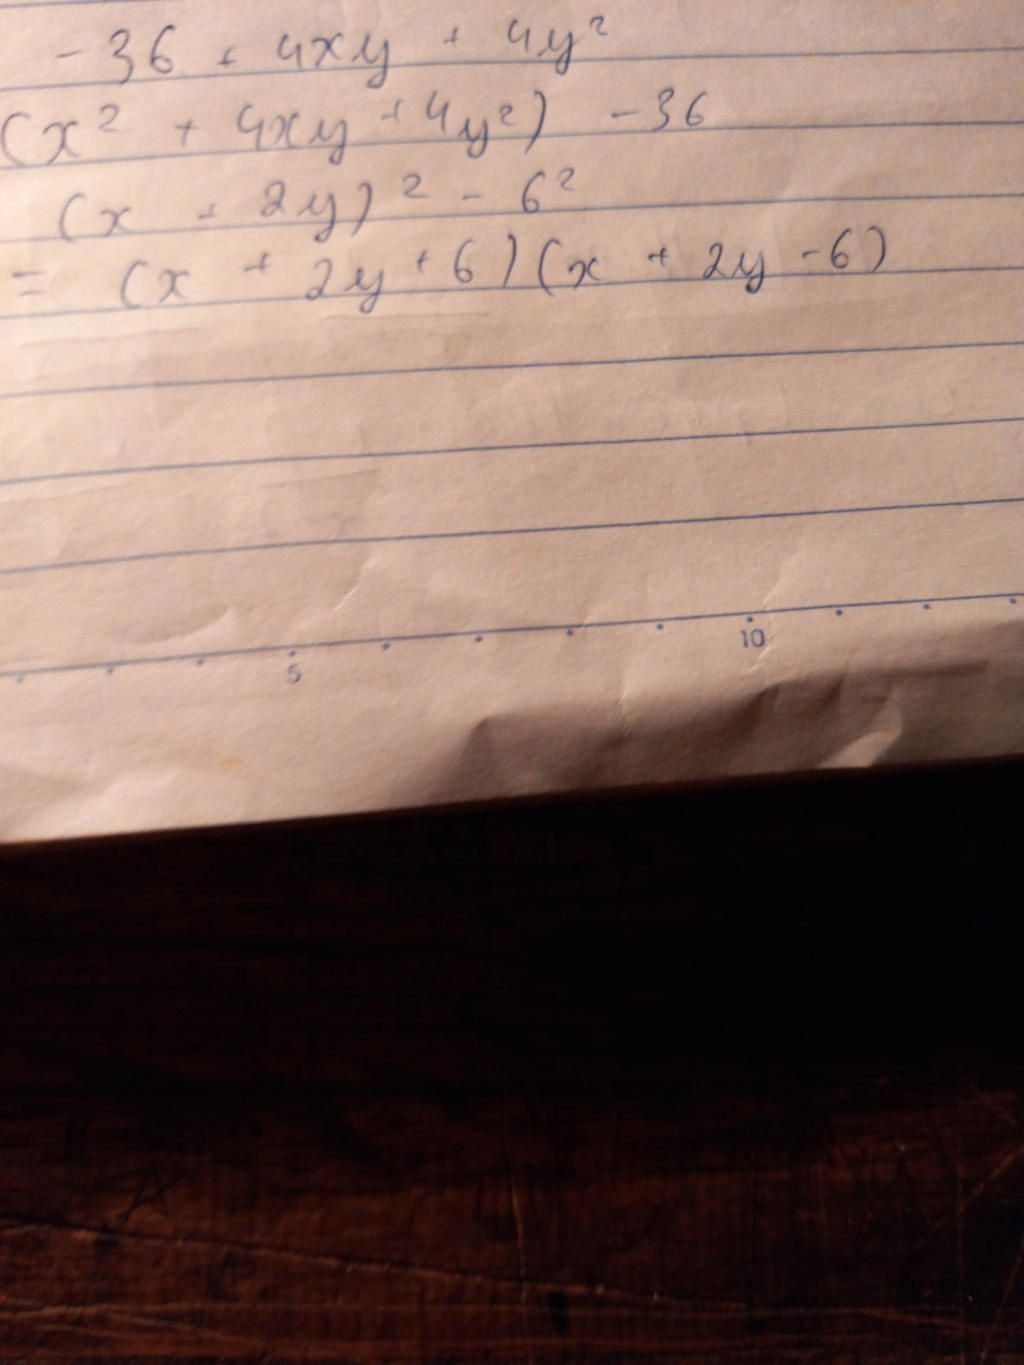 - 36 + 4xy + 4y²
(x² + 4xy + 4y²) - 36
(x + 2y)² - 6²
= (x + 2y + 6)(x + 2y - 6)
5 10